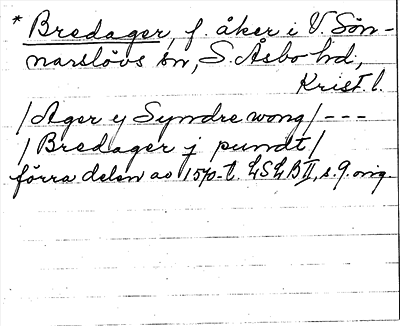 * Bredager, f. åker i V. Sön-
narslövs sn, S. Åsbo hd,
Krist. l.
/Ager y Syndre wong/ ---
/Bredager j pundt/
förra delen av 1570-t. LSLB II, s. 9. orig.